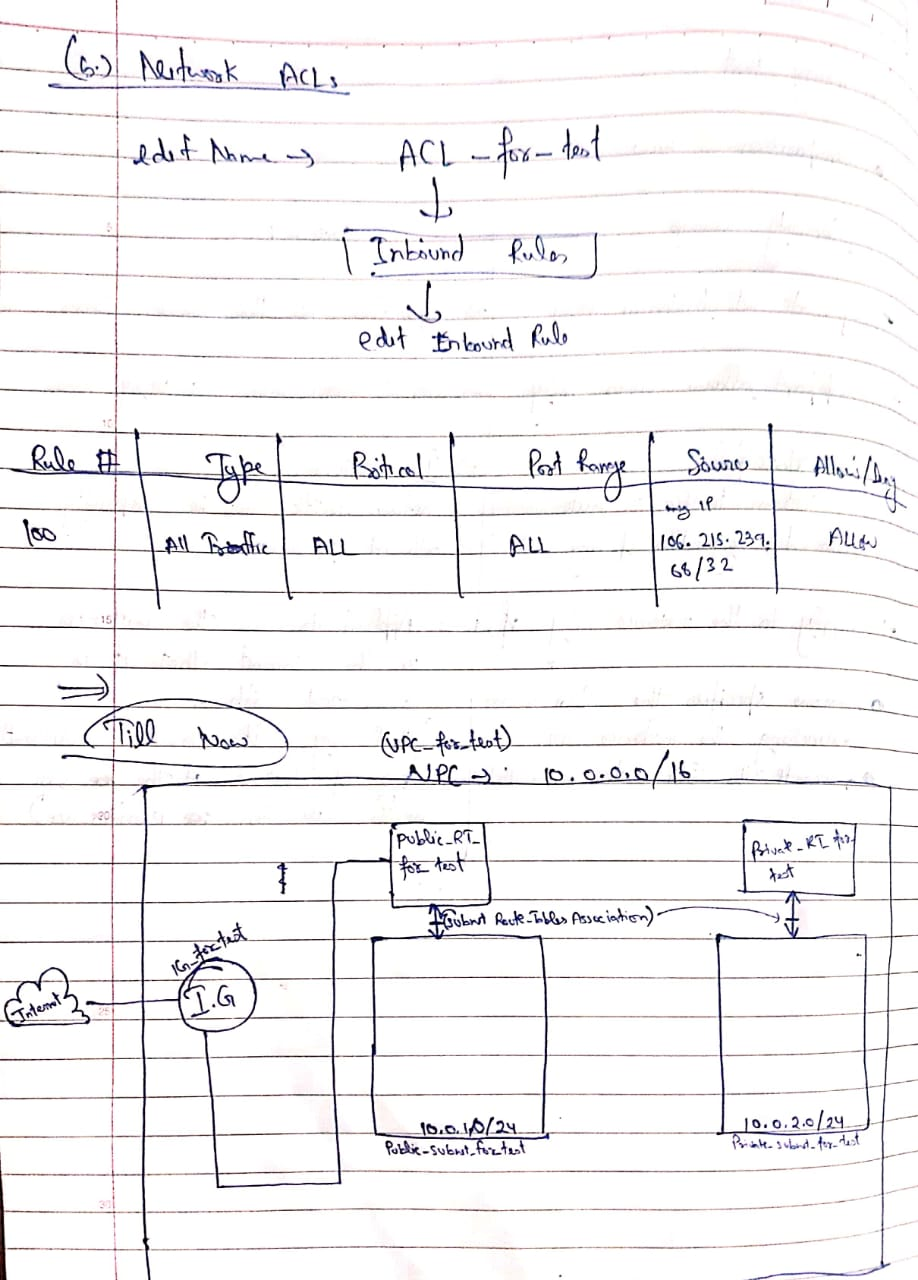 (6.) Network ACLs
edit Name → ACL-for-test
↓
Inbound Rules
↓
edit Inbound Rule
Rule # Type Portical Port Range Source Allow/Deny
100 All Traffic ALL ALL my IP 106.215.239.68/32 Allow
⇒
Till Now
(VPC_for_test)
VPC → : 10.0.0.0/16
public_RT_
for test
Private_RT_for
test
(Subnet Route-Tables Association)
IG_for test
I.G
Internet
10.0.1.0/24
Public-subnet_for_test
10.0.2.0/24
Private_subnet_for_test
10
15
20
25
30